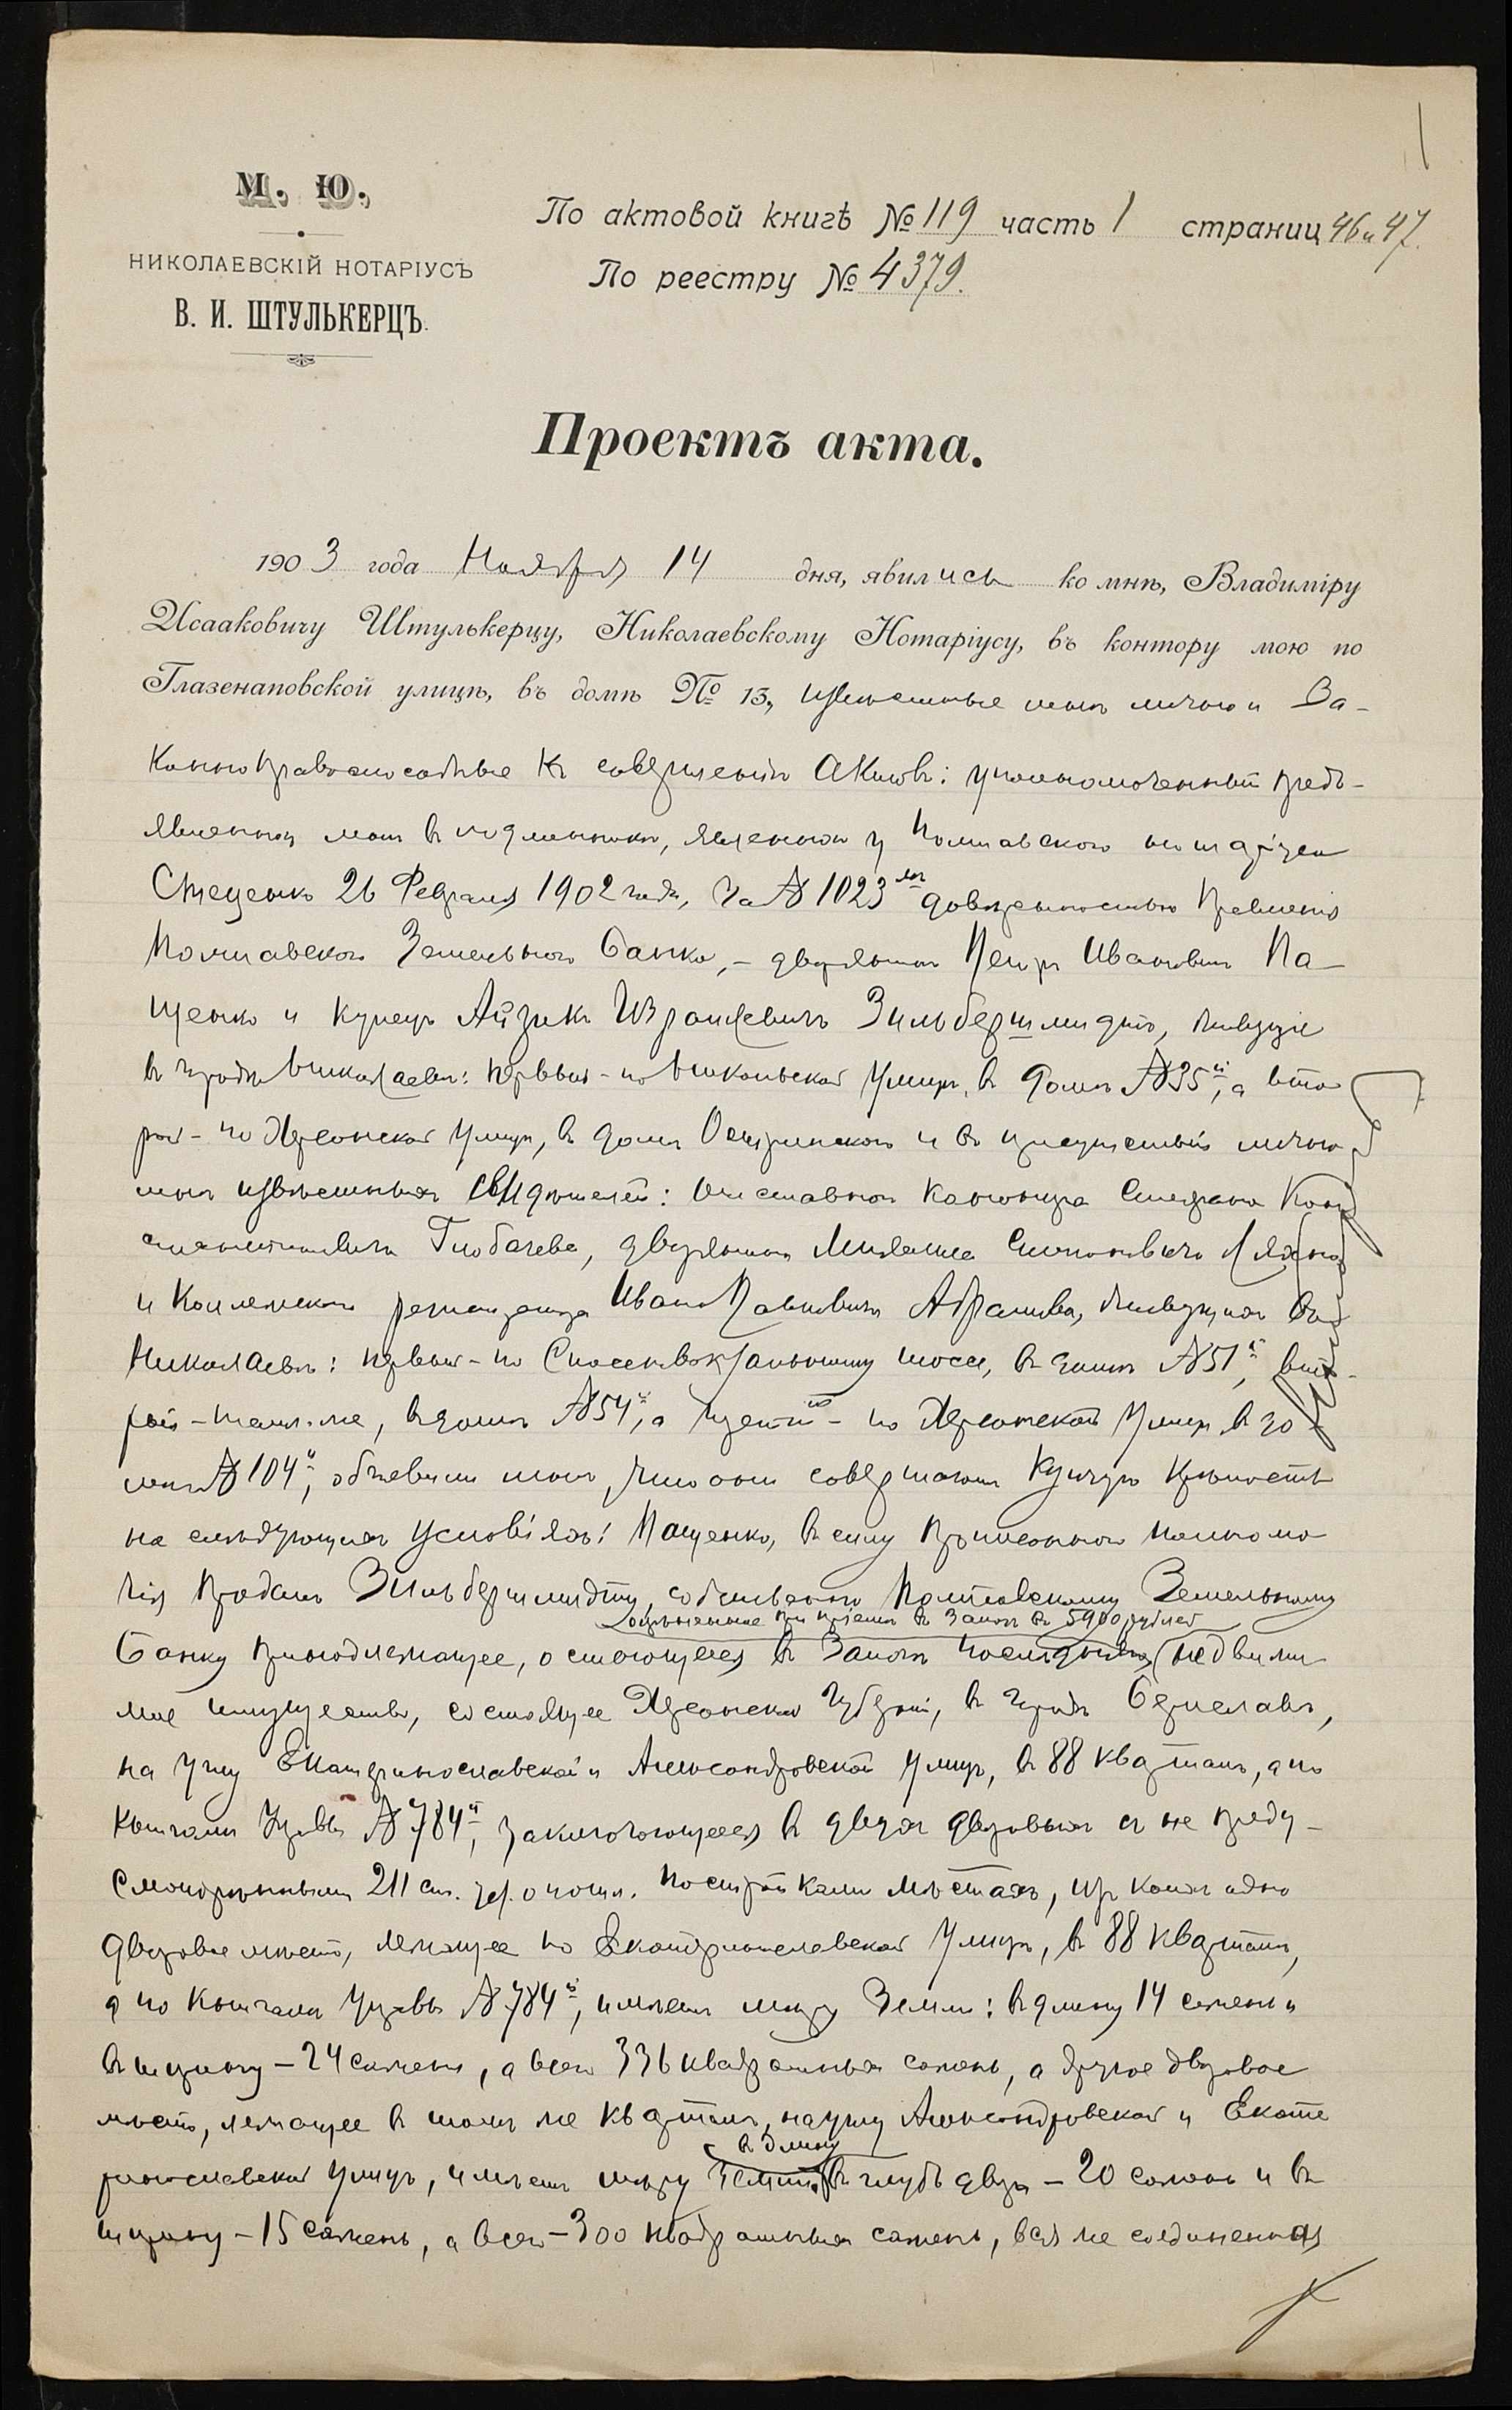 1
М. Ю.
НИКОЛАЕВСКІЙ НОТАРІУСЪ
В. И. ШТУЛЬКЕРЦЪ.
По актовой книгѣ № 119 часть 1 страниц 46 и 47.
По реестру № 4379.
Проектъ акта.
1903 года Ноября 14 дня, явились ко мнѣ, Владиміру
Исааковичу Штулькерцу, Николаевскому Нотаріусу, въ контору мою по
Глазенаповской улицѣ, въ домѣ № 13, извѣстные мнѣ лично и за-
коннo правоспособные къ совершенію актовъ: уполномоченный предъ-
явленной мнѣ въ подлинникѣ, явленной у Полтавскаго нотаріуса
Стеценко 26 Февраля 1902 года, за № 1023 довѣренностью Правленія
Полтавскаго Земельнаго Банка, - дворянинъ Петръ Ивановичъ Па-
щенко и купецъ Айзикъ Израилевичъ Зильбершмидтъ, живущіе
въ городѣ Николаевѣ: первый - по Никольской улицѣ, въ домѣ № 35й, а вто
рой - по Херсонской улицѣ, въ домѣ и въ присутствіи лично
мнѣ извѣстныхъ свидѣтелей: отставного Степана Конс
тантиновича Глобачева, дворянина Симоновича
и Коллежскаго регистратора Ивана Павловича Абрамова, живущихъ въ
Николаевѣ: первый - по шоссе, въ домѣ № 51й, вто-
рой - тамъ-же, въ домѣ № 54й, а третій - по Херсонской улицѣ въ до-
мѣ № 104й, объявили мнѣ, что они совершаютъ купчую крѣпость
на слѣдующихъ условіяхъ: Пащенко, въ силу прописаннаго полномо
чія продалъ Зильбершмидту, собственно Полтавскому Земельному
оцѣненное при пріемѣ въ залогъ въ 5900 рублей
Банку принадлежащее, остающееся въ залогѣ послѣдняго недвижи
мое имущество, состоящее Херсонской губерніи, въ городѣ Бериславѣ,
на углу Екатеринославской и Александровской улицъ, въ 88 кварталѣ, а по
книгамъ Управы № 784й, заключающееся въ двухъ дворовыхъ съ не преду-
смотрѣнными 211 ст. постройками мѣстахъ, изъ коихъ одно
дворовое мѣсто, лежащее по Екатеринославской улицѣ, въ 88 кварталѣ,
а по книгамъ Управы № 784й, имѣетъ мѣру земли: въ длину 14 сажень и
въ ширину - 24 сажени, а всего 336 квадратныхъ сажень, а другое дворовое
мѣсто, лежащее въ томъ же кварталѣ, на углу Александровской и Екате
въ длину
ринославской улицъ, имѣетъ мѣру земли въ глубь двора - 20 сажень и въ
ширину - 15 сажень, а всего - 300 квадратныхъ сажень, вся же соединенная